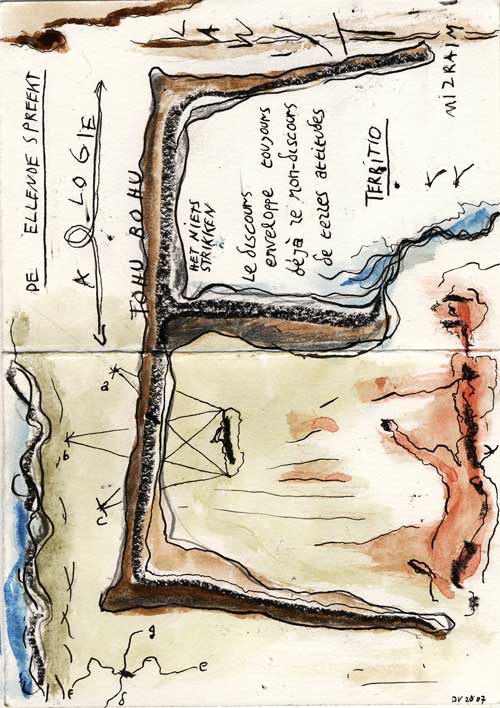 LAWYT
MIZRAIM
DE ELLENDE SPREEKT
A-LOGIE
TOHU BOHU
HET NIETS
STRIKKEN
Le discours
enveloppe toujours
déjà le non-discours
de telles attitudes
TERRITIO
a
b
c
g
e
f
d
DV 2007